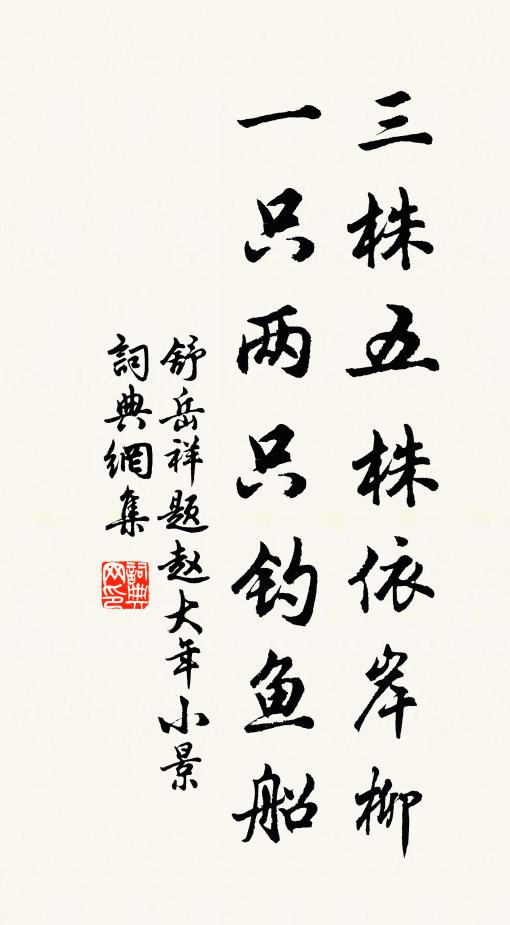 三株五株依岸柳
一只两只钓鱼船
舒岳祥题赵大年小景
詞典網集
詞典网印